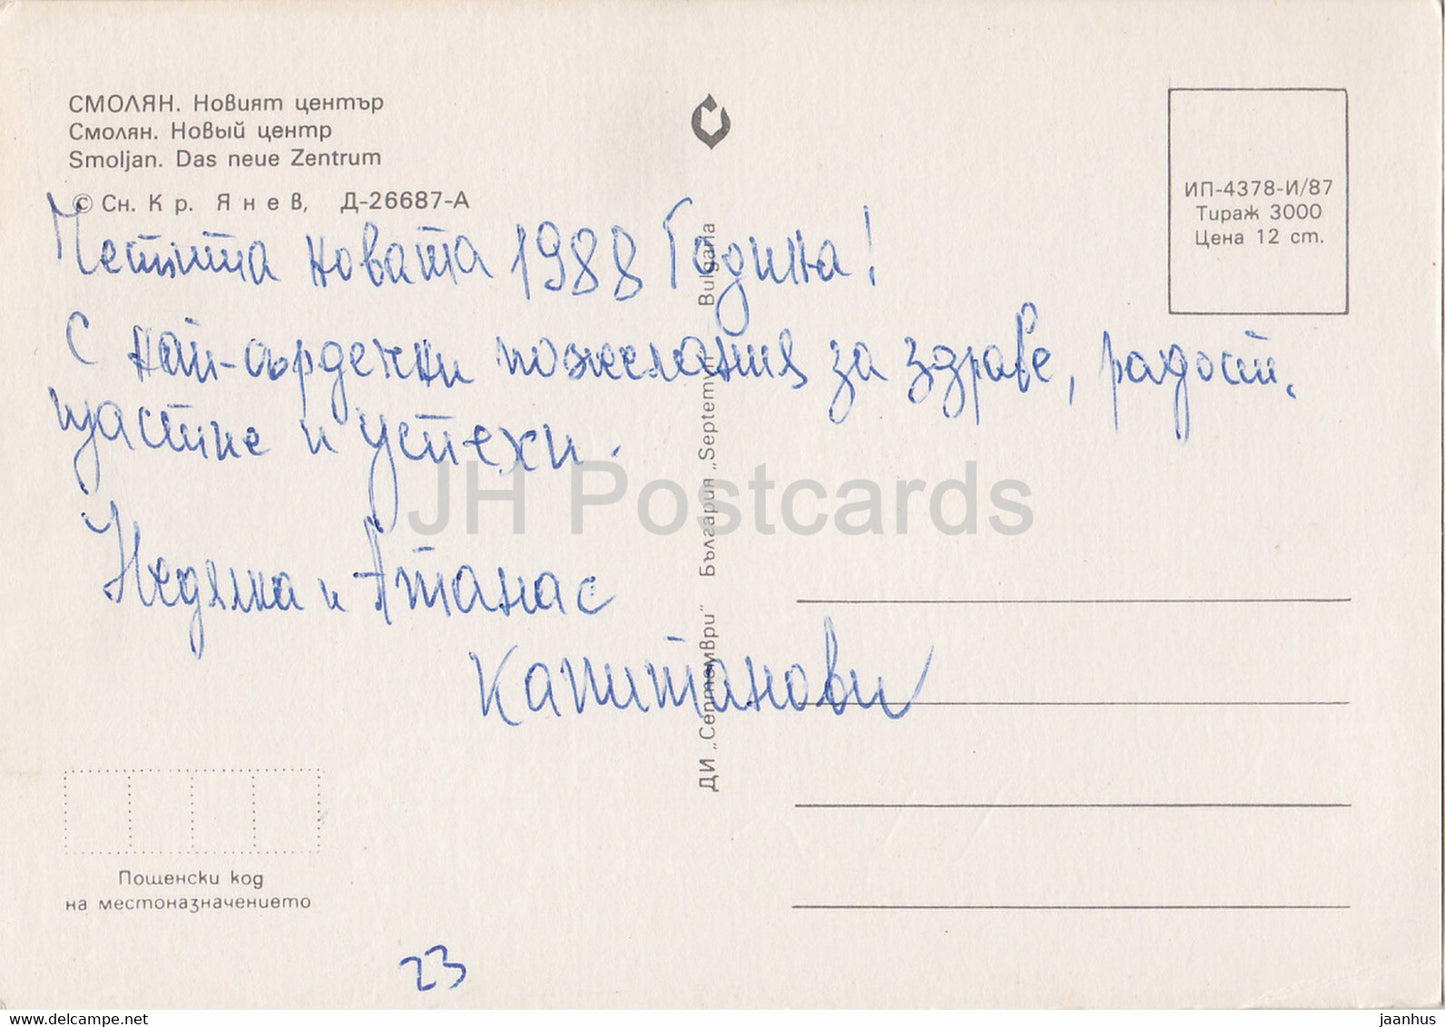 СМОЛЯН. Новият център
Смолян. Новый центр
Smoljan. Das neue Zentrum
© Сн. Кр. Янев, Д-26687-А
ИП-4378-И/87
Тираж 3000
Цена 12 ст.
Честита новата 1988 Година!
С най-сърдечни пожелания за здраве, радост,
щастие и успехи.
Недялка и Атанас
Капитанови
ДИ „Септември" България „Septemvri" Bulgaria
JH Postcards
Пощенски код
на местоназначението
23
www.delcampe.net
jaanhus